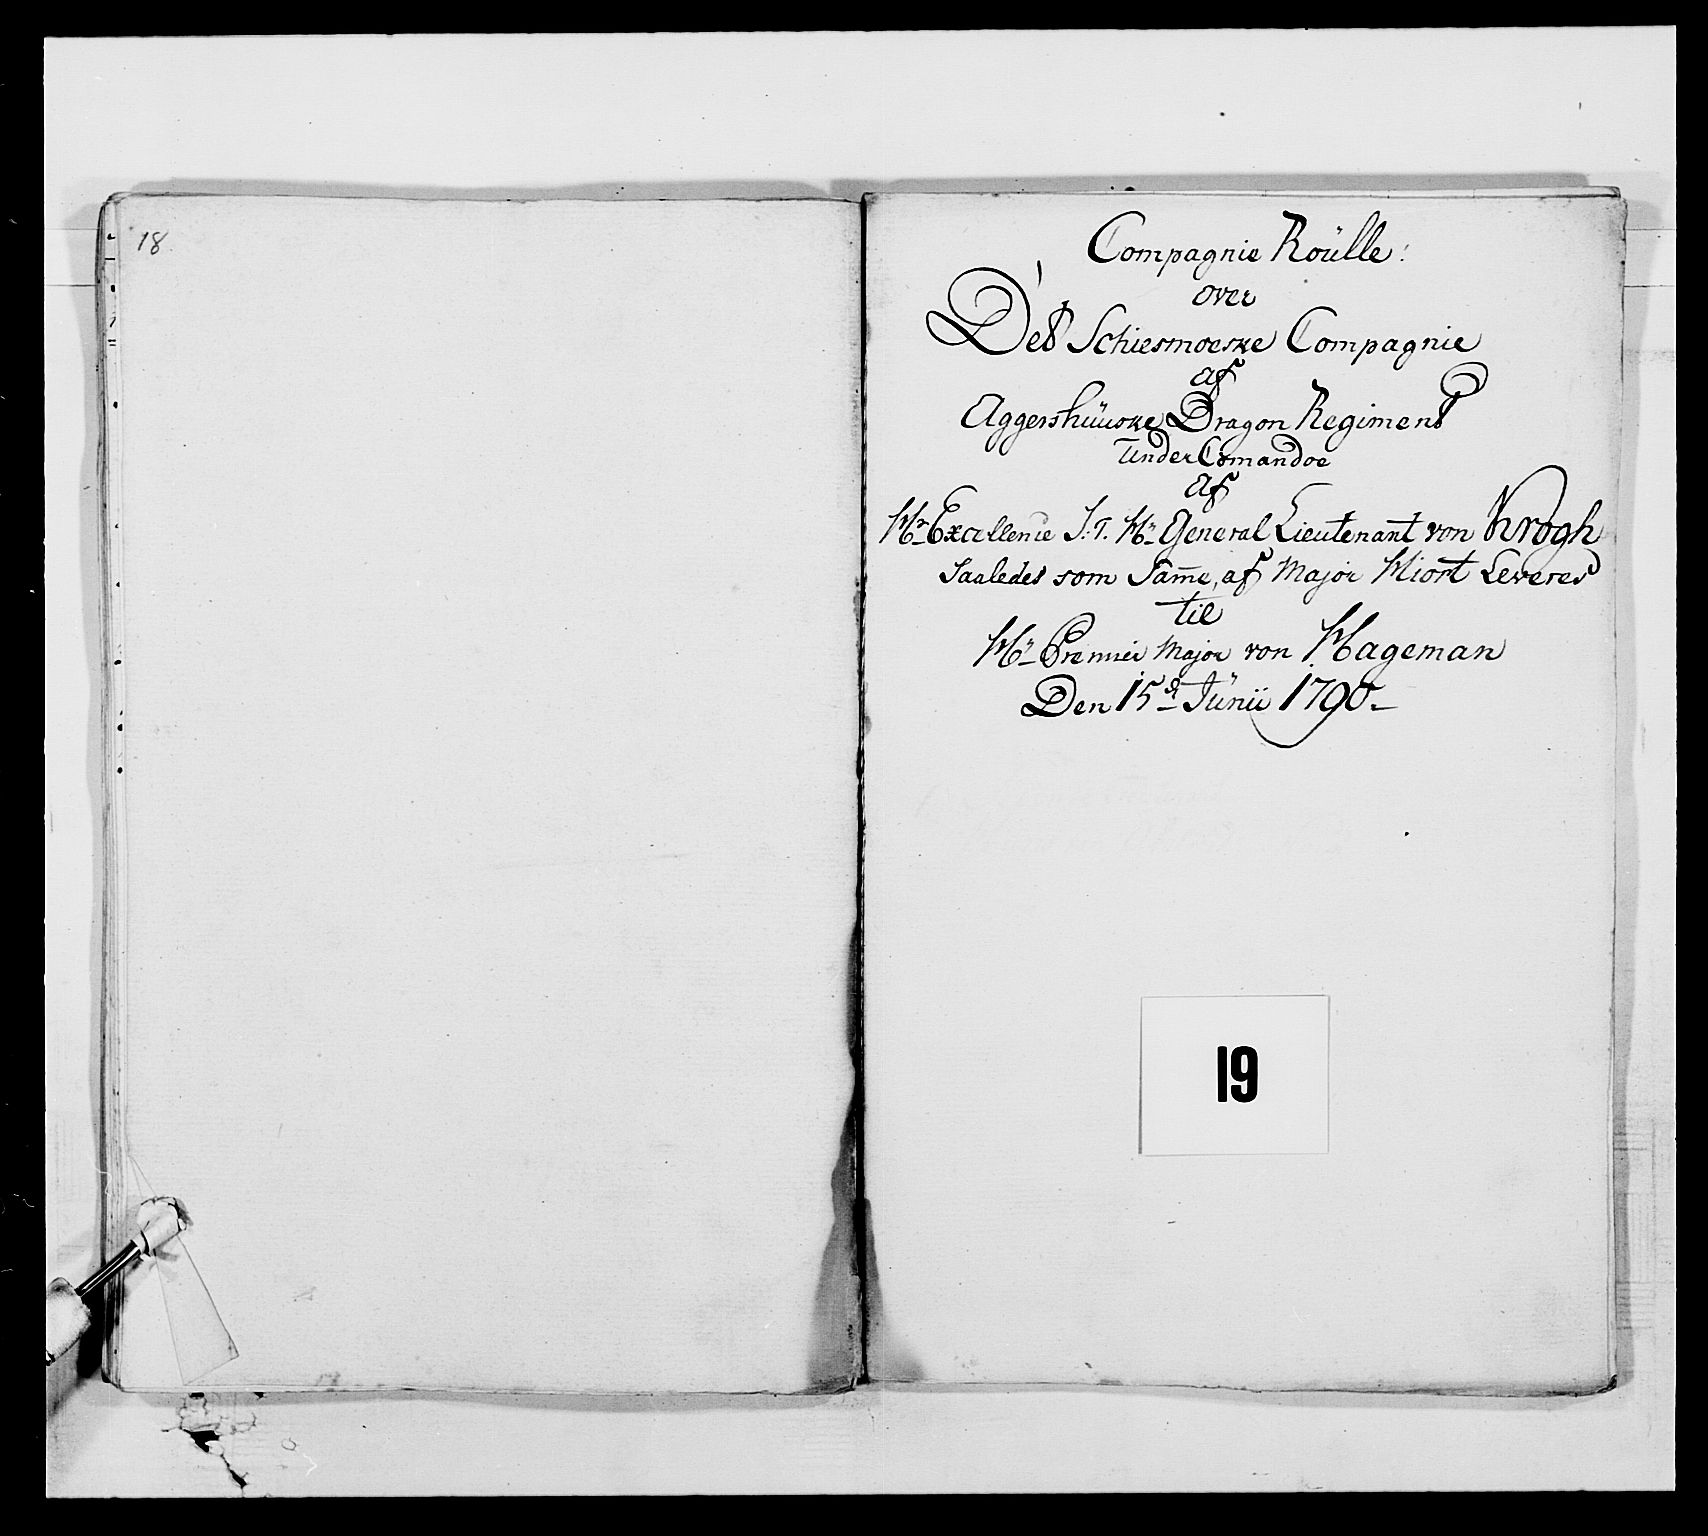 18.
Compagnie Roülle:
over
Det Schiesmoeske Compagnie
af
Aggershüüske Dragon Regiment
Under Comandoe
af
Hr Excellence S: T. Hr General Lieutenant von Krogh
Saaledes som Same, af Major Hiort Leveres
til
Hr Premier Major von Hageman
Den 15de Junii 1790
19